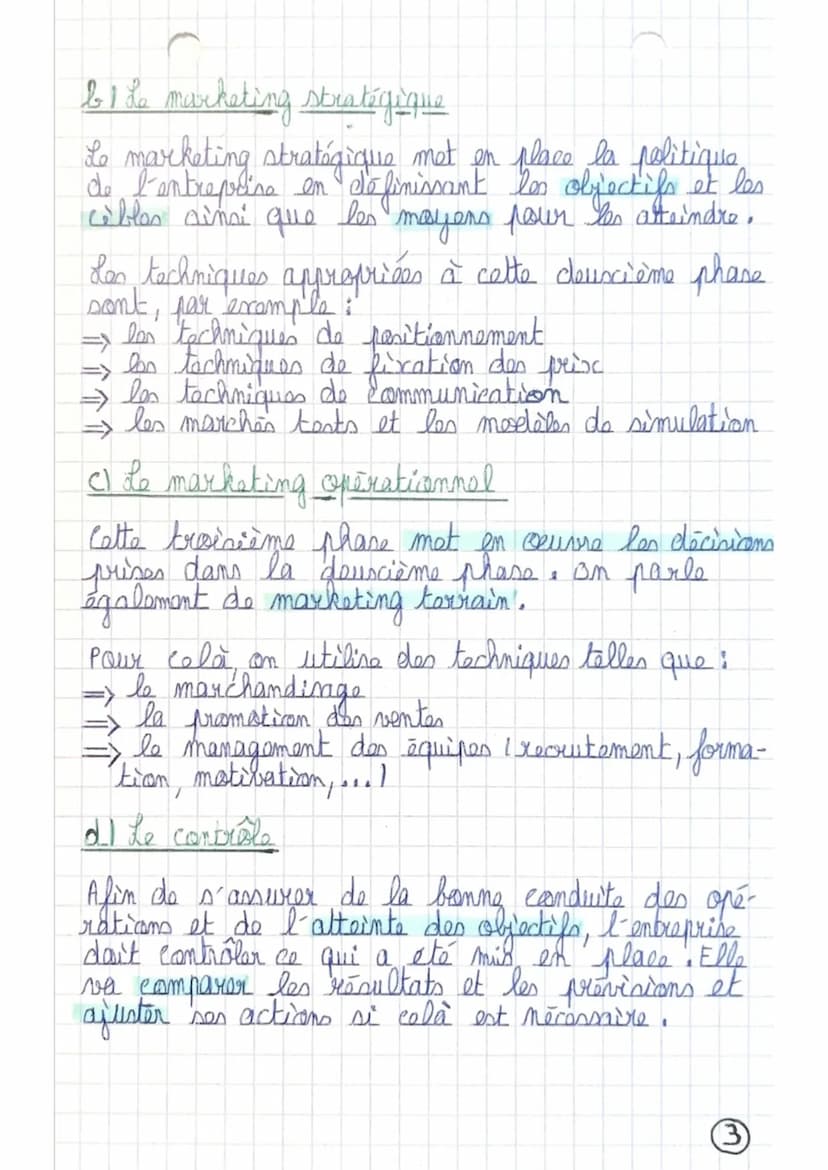 b) Le marketing stratégique
Le marketing stratégique met en place la politique
de l'entreprise en définissant les objectifs et les
cibles ainsi que les moyens pour les atteindre.
Les techniques appropriées à cette deuxième phase
sont, par exemple :
=> les techniques de positionnement
=> les techniques de fixation des prix
=> les techniques de communication
=> les marchés tests et les modèles de simulation
c) Le marketing opérationnel
Cette troisième phase met en oeuvre les décisions
prises dans la deuxième phase. On parle
également de marketing terrain.
Pour celà, on utilise des techniques telles que :
=> le marchandisage
=> la promotion des ventes
=> le management des équipes (recrutement, forma-
tion, motivation, ...)
d) Le contrôle
Afin de s'assurer de la bonne conduite des opé-
rations et de l'atteinte des objectifs, l'entreprise
doit contrôler ce qui a été mis en place. Elle
va comparer les résultats et les prévisions et
ajuster ses actions si celà est nécessaire.
3